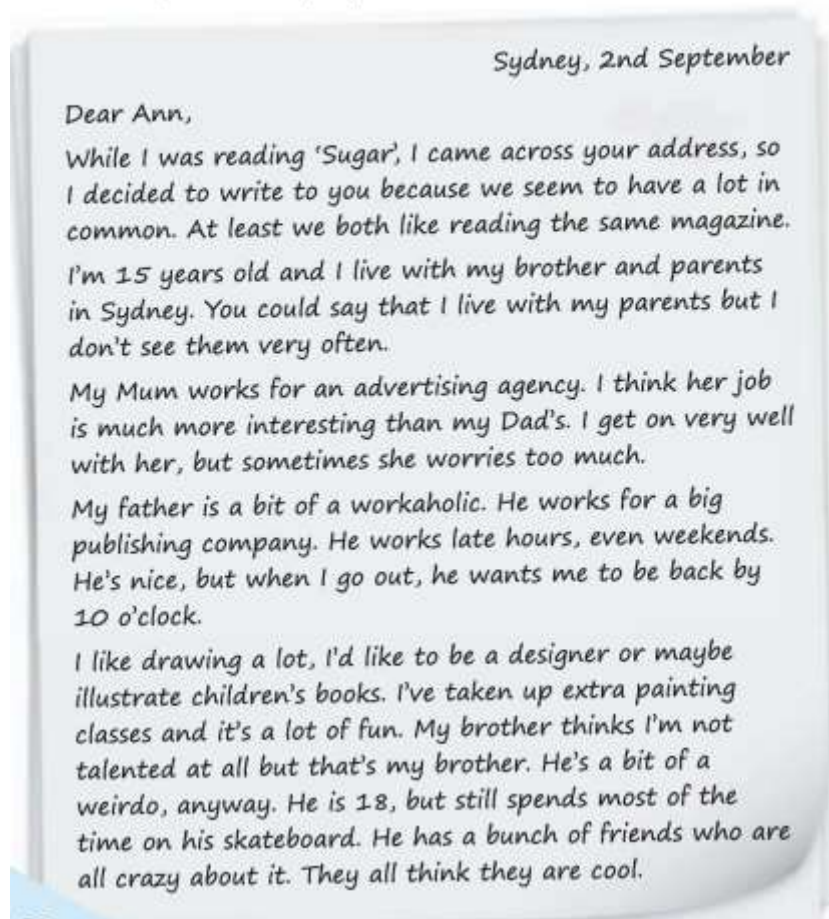 Sydney, 2nd September
Dear Ann,
While I was reading 'Sugar', I came across your address, so
I decided to write to you because we seem to have a lot in
common. At least we both like reading the same magazine.
I'm 15 years old and I live with my brother and parents
in Sydney. You could say that I live with my parents but I
don't see them very often.
My Mum works for an advertising agency. I think her job
is much more interesting than my Dad's. I get on very well
with her, but sometimes she worries too much.
My father is a bit of a workaholic. He works for a big
publishing company. He works late hours, even weekends.
He's nice, but when I go out, he wants me to be back by
10 o'clock.
I like drawing a lot, I'd like to be a designer or maybe
illustrate children's books. I've taken up extra painting
classes and it's a lot of fun. My brother thinks I'm not
talented at all but that's my brother. He's a bit of a
weirdo, anyway. He is 18, but still spends most of the
time on his skateboard. He has a bunch of friends who are
all crazy about it. They all think they are cool.